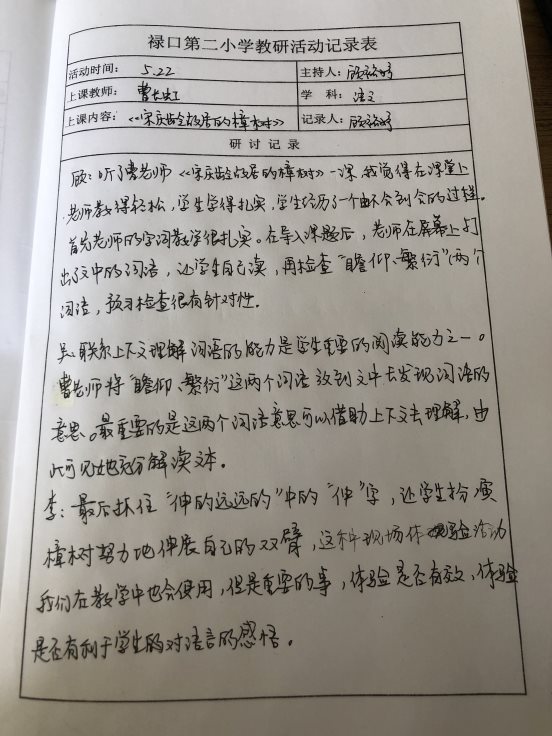 禄口第二小学教研活动记录表
活动时间： 5.22 主持人：顾
上课教师： 曹长虹 学 科：语文
上课内容：《宋庆龄故居的樟树》 记录人：顾
研 讨 记 录
顾：听了曹老师《宋庆龄故居的樟树》一课，我觉得在课堂上
老师教得轻松，学生学得扎实，学生经历了一个由不会到会的过程。
首先老师的字词教学很扎实。在导入课题后，老师在屏幕上打
出了文中的词语，让学生自己读，再检查“瞻仰、繁衍”两个
词语，预习检查很有针对性。
吴：联系上下文理解词语的能力是学生重要的阅读能力之一。
曹老师将“瞻仰、繁衍”这两个词语放到文中去发现词语的
意思。最重要的是这两个词语意思可以借助上下文去理解，由
此可见她充分解读文本。
李：最后抓住“伸的远远的”中的“伸”字，让学生扮演
樟树努力地伸展自己的双臂，这种现场体验活动
我们在教学中也会使用，但是重要的事，体验是否有效，体验
是否有利于学生的对语言的感悟。